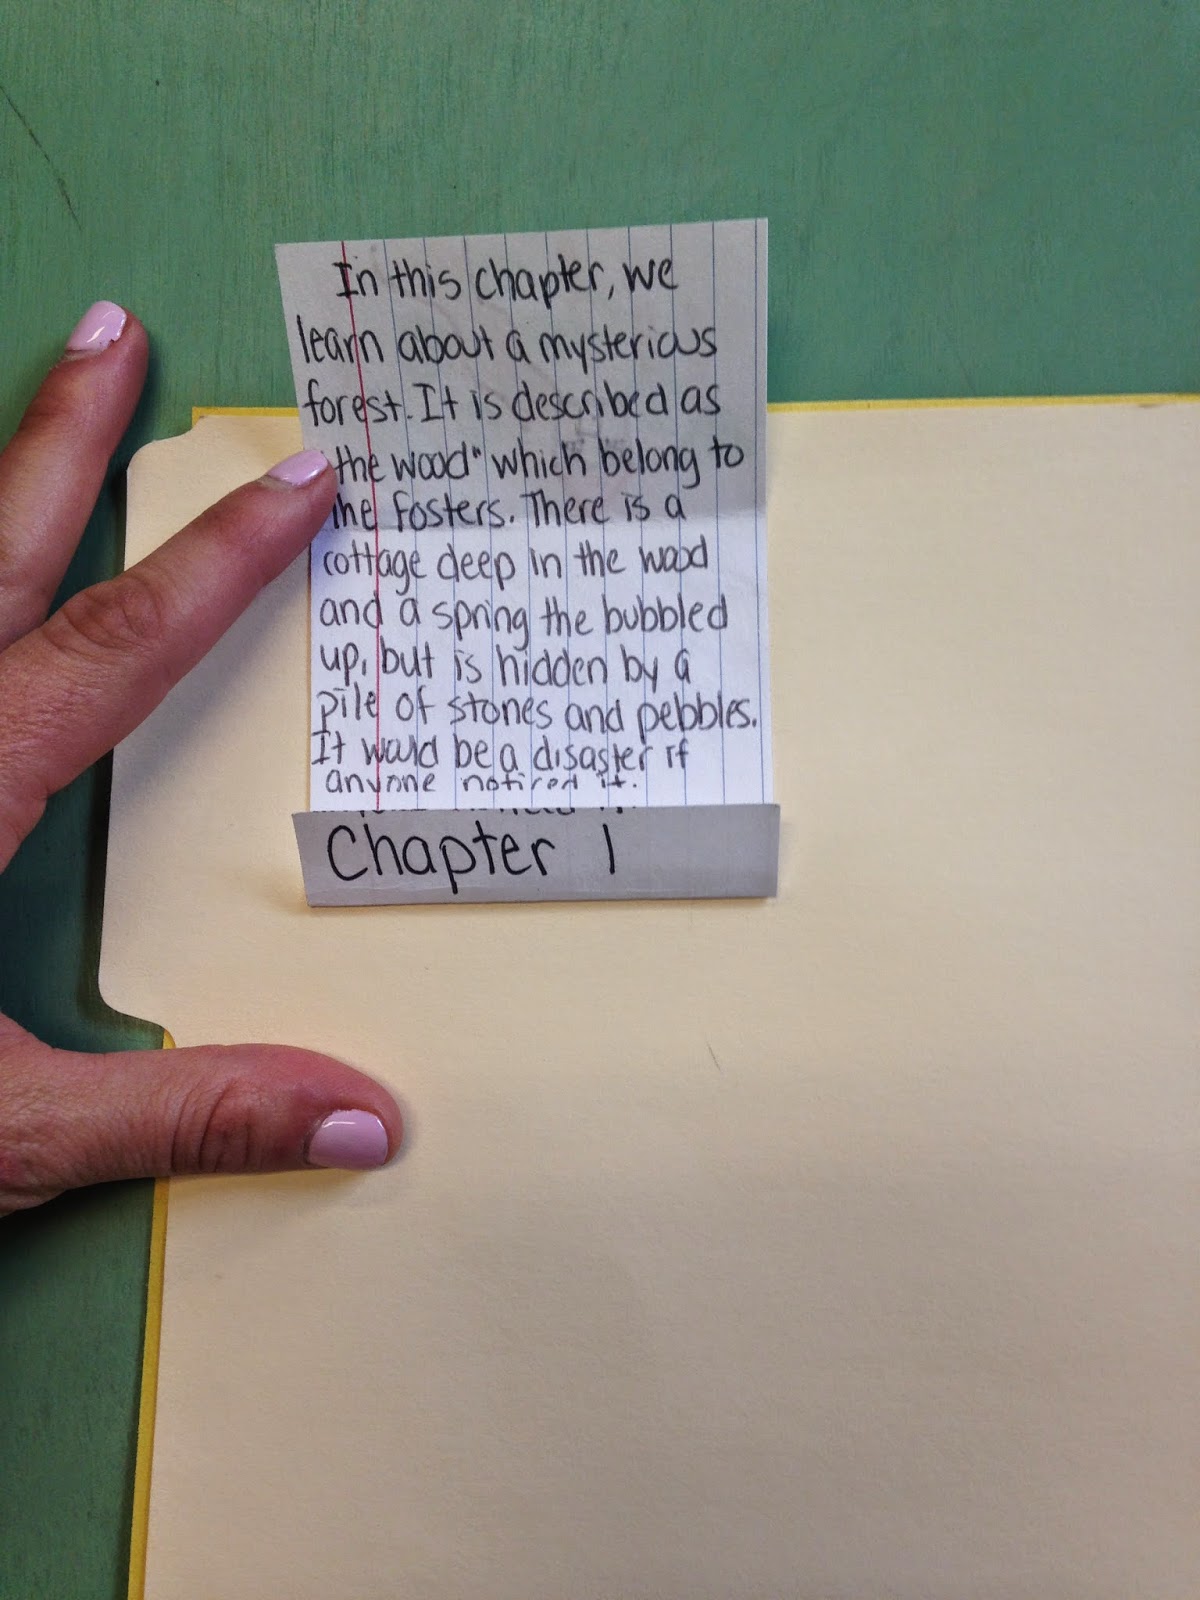 In this chapter, we
learn about a mysterious
forest. It is described as
"the wood" which belong to
the Fosters. There is a
cottage deep in the wood
and a spring the bubbled
up, but is hidden by a
pile of stones and pebbles.
It would be a disaster if
anyone noticed it.
Chapter 1